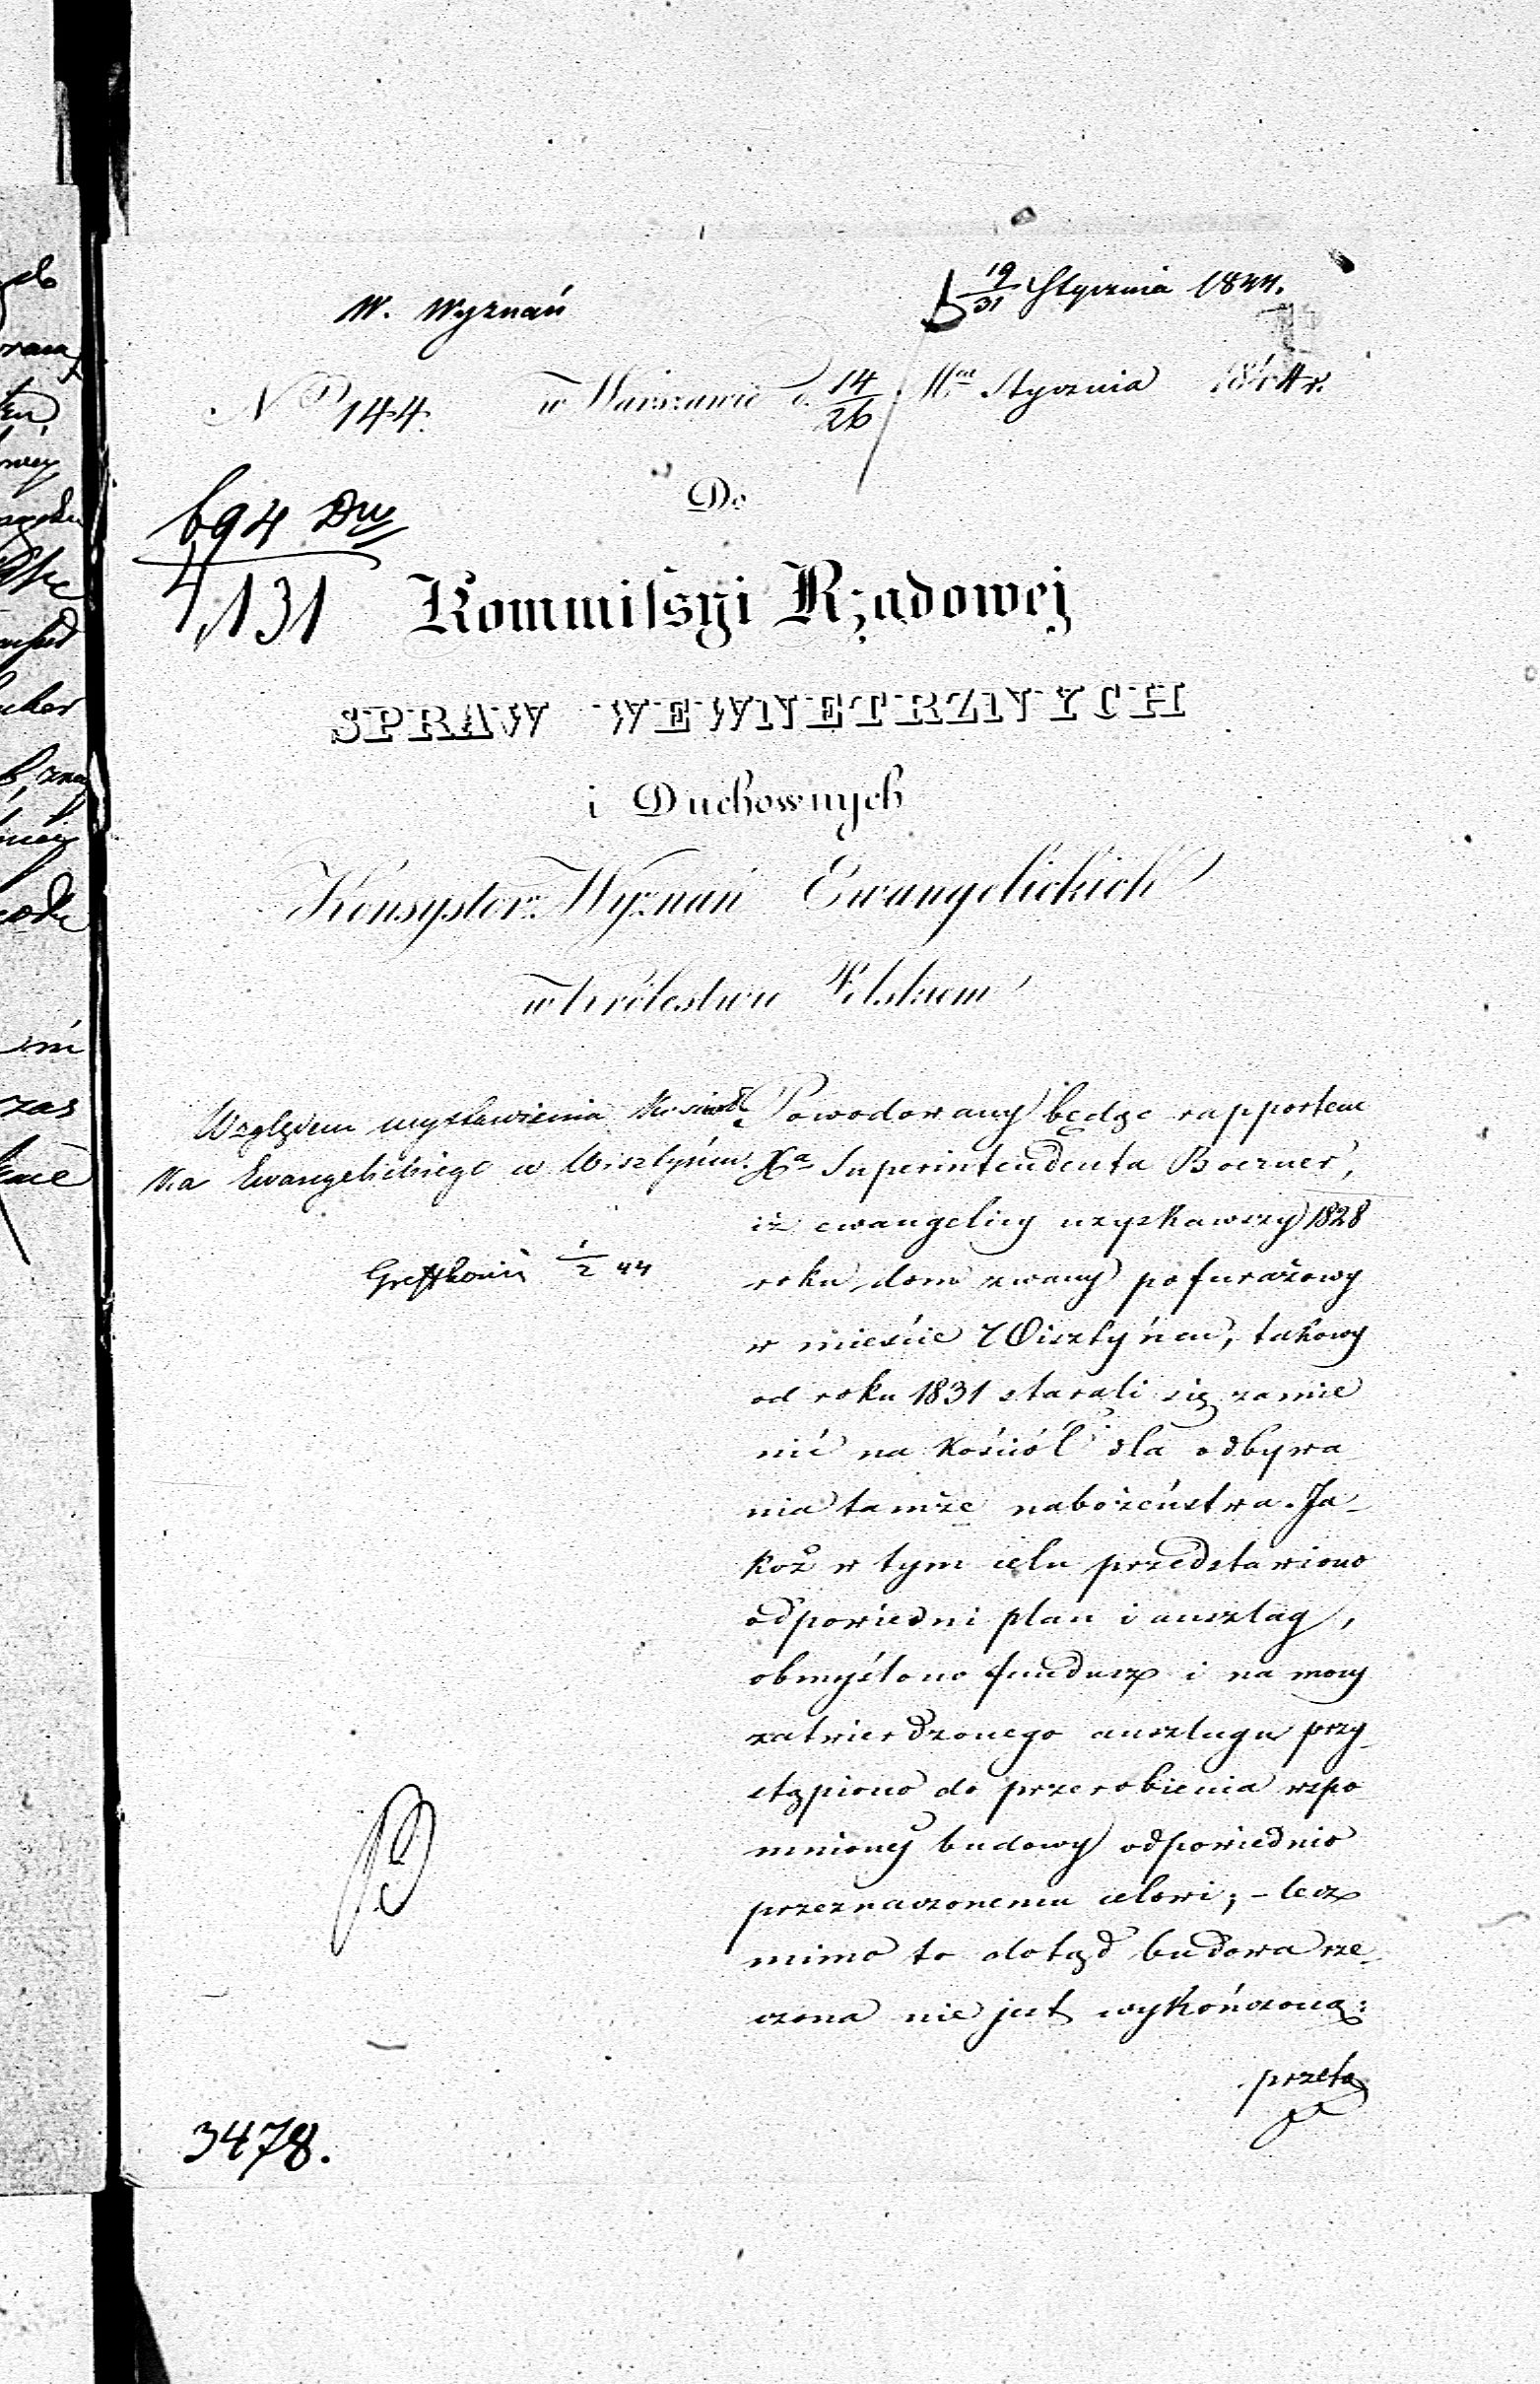 19/31 Stycznia 1844.
W. Wyznań
No 144. w Warszawie d. 14/26 Mca Stycznia 1844 r.
Do
694
4,131
Kommissyi Rządowej
SPRAW WEWNETRZNYCH
i Duchownych
Konsystorz Wyznań Ewangelickich
w Królestwie Polskiem
Względem wystawienia Kościoł
ka Ewangelickiego w Wisztyńcu.
1/2 44
Powodowany będąc rapportem
Xa Superintendenta Boerner,
iż ewangelicy uzyskawszy 1828
roku dom zwany pofurażowy
w mieście Wisztyńcu, takowy
od roku 1831 starali się zamie
nić na Kościół dla odbywa
nia tamże nabożeństwa. Ja-
koż w tym celu przedstawiono
odpowiedni plan i anszlag,
obmyślono fundusz i na mocy
zatwierdzonego anszlagu przy-
stąpiono do przerobienia wspo
mnioney budowy odpowiednio
przeznaczonemu celowi; - lecz
mimo to dotąd budowa rze-
czona nie jest wykończoną:
przeto
3478.